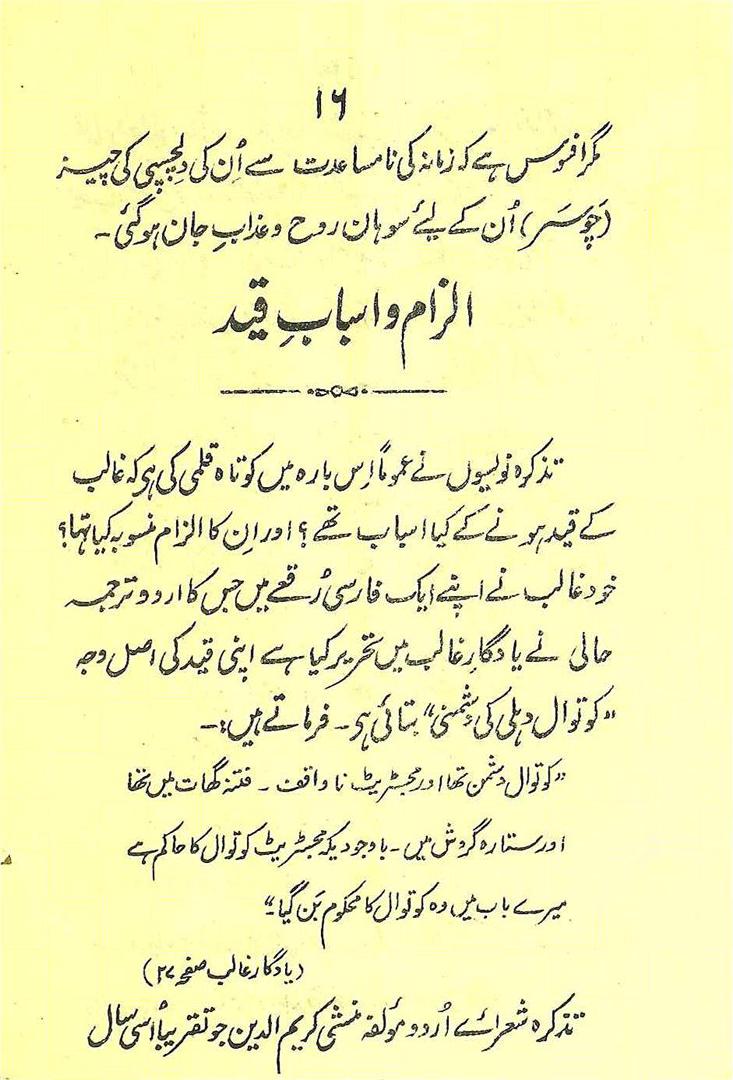 ۱۶
مگر افسوس ہے کہ زمانہ کی نامساعدت سے اُن کی دلچسپی کی چیز
(چَوسَر) اُن کے لئے سوہان روح و عذابِ جان ہو گئی ۔
الزام و اسبابِ قید
تذکرہ نویسوں نے عموماً اِس بارہ میں کوتاہ قلمی کی ہی کہ غالب
کے قید ہونے کے کیا اسباب تھے ؟ اور اِن کا الزام منسوبہ کیا تہا ؟
خود غالب نے اپنے ایک فارسی رُقعے میں جس کا اردو ترجمہ
حالی نے یادگارِ غالب میں تحریر کیا ہے اپنی قید کی اصل وجہ
”کوتوال دہلی کی دشمنی“ بتائی ہی ۔ فرماتے ہیں :۔
”کوتوال دشمن تھا اور مجسٹریٹ نا واقف ۔ فتنہ گھات میں تھا
اور ستارہ گردش میں ۔ باوجودیکہ مجسٹریٹ کوتوال کا حاکم ہے
میرے باب میں وہ کوتوال کا محکوم بَن گیا ۔“
(یادگار غالب صفحہ ۲۷)
تذکرہ شعرائے اُردو مؤلفہ منشی کریم الدین جو تقریباً اسّی سال